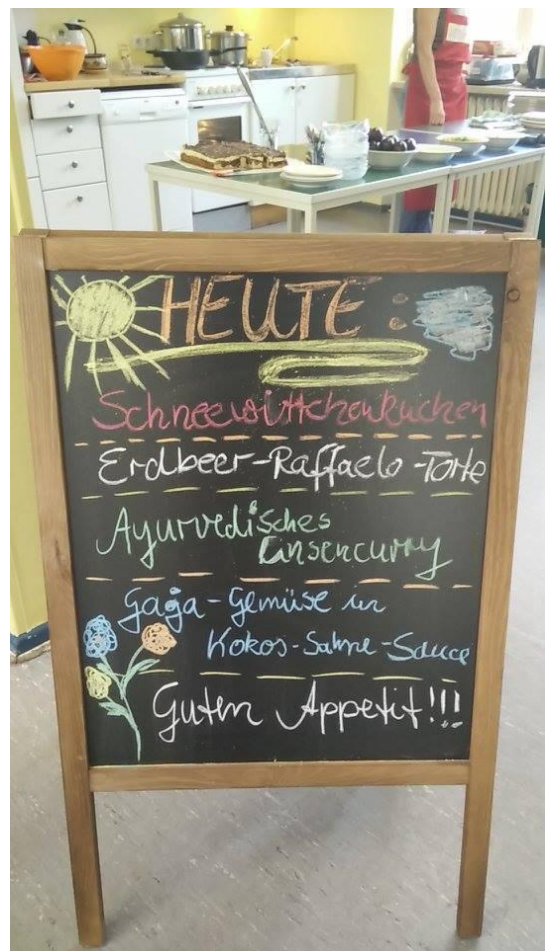 HEUTE:
Schneewittchenkuchen
Erdbeer-Raffaelo-Torte
Ayurvedisches
Linsencurry
Gaga-Gemüse in
Kokos-Sahne-Sauce
Guten Appetit!!!